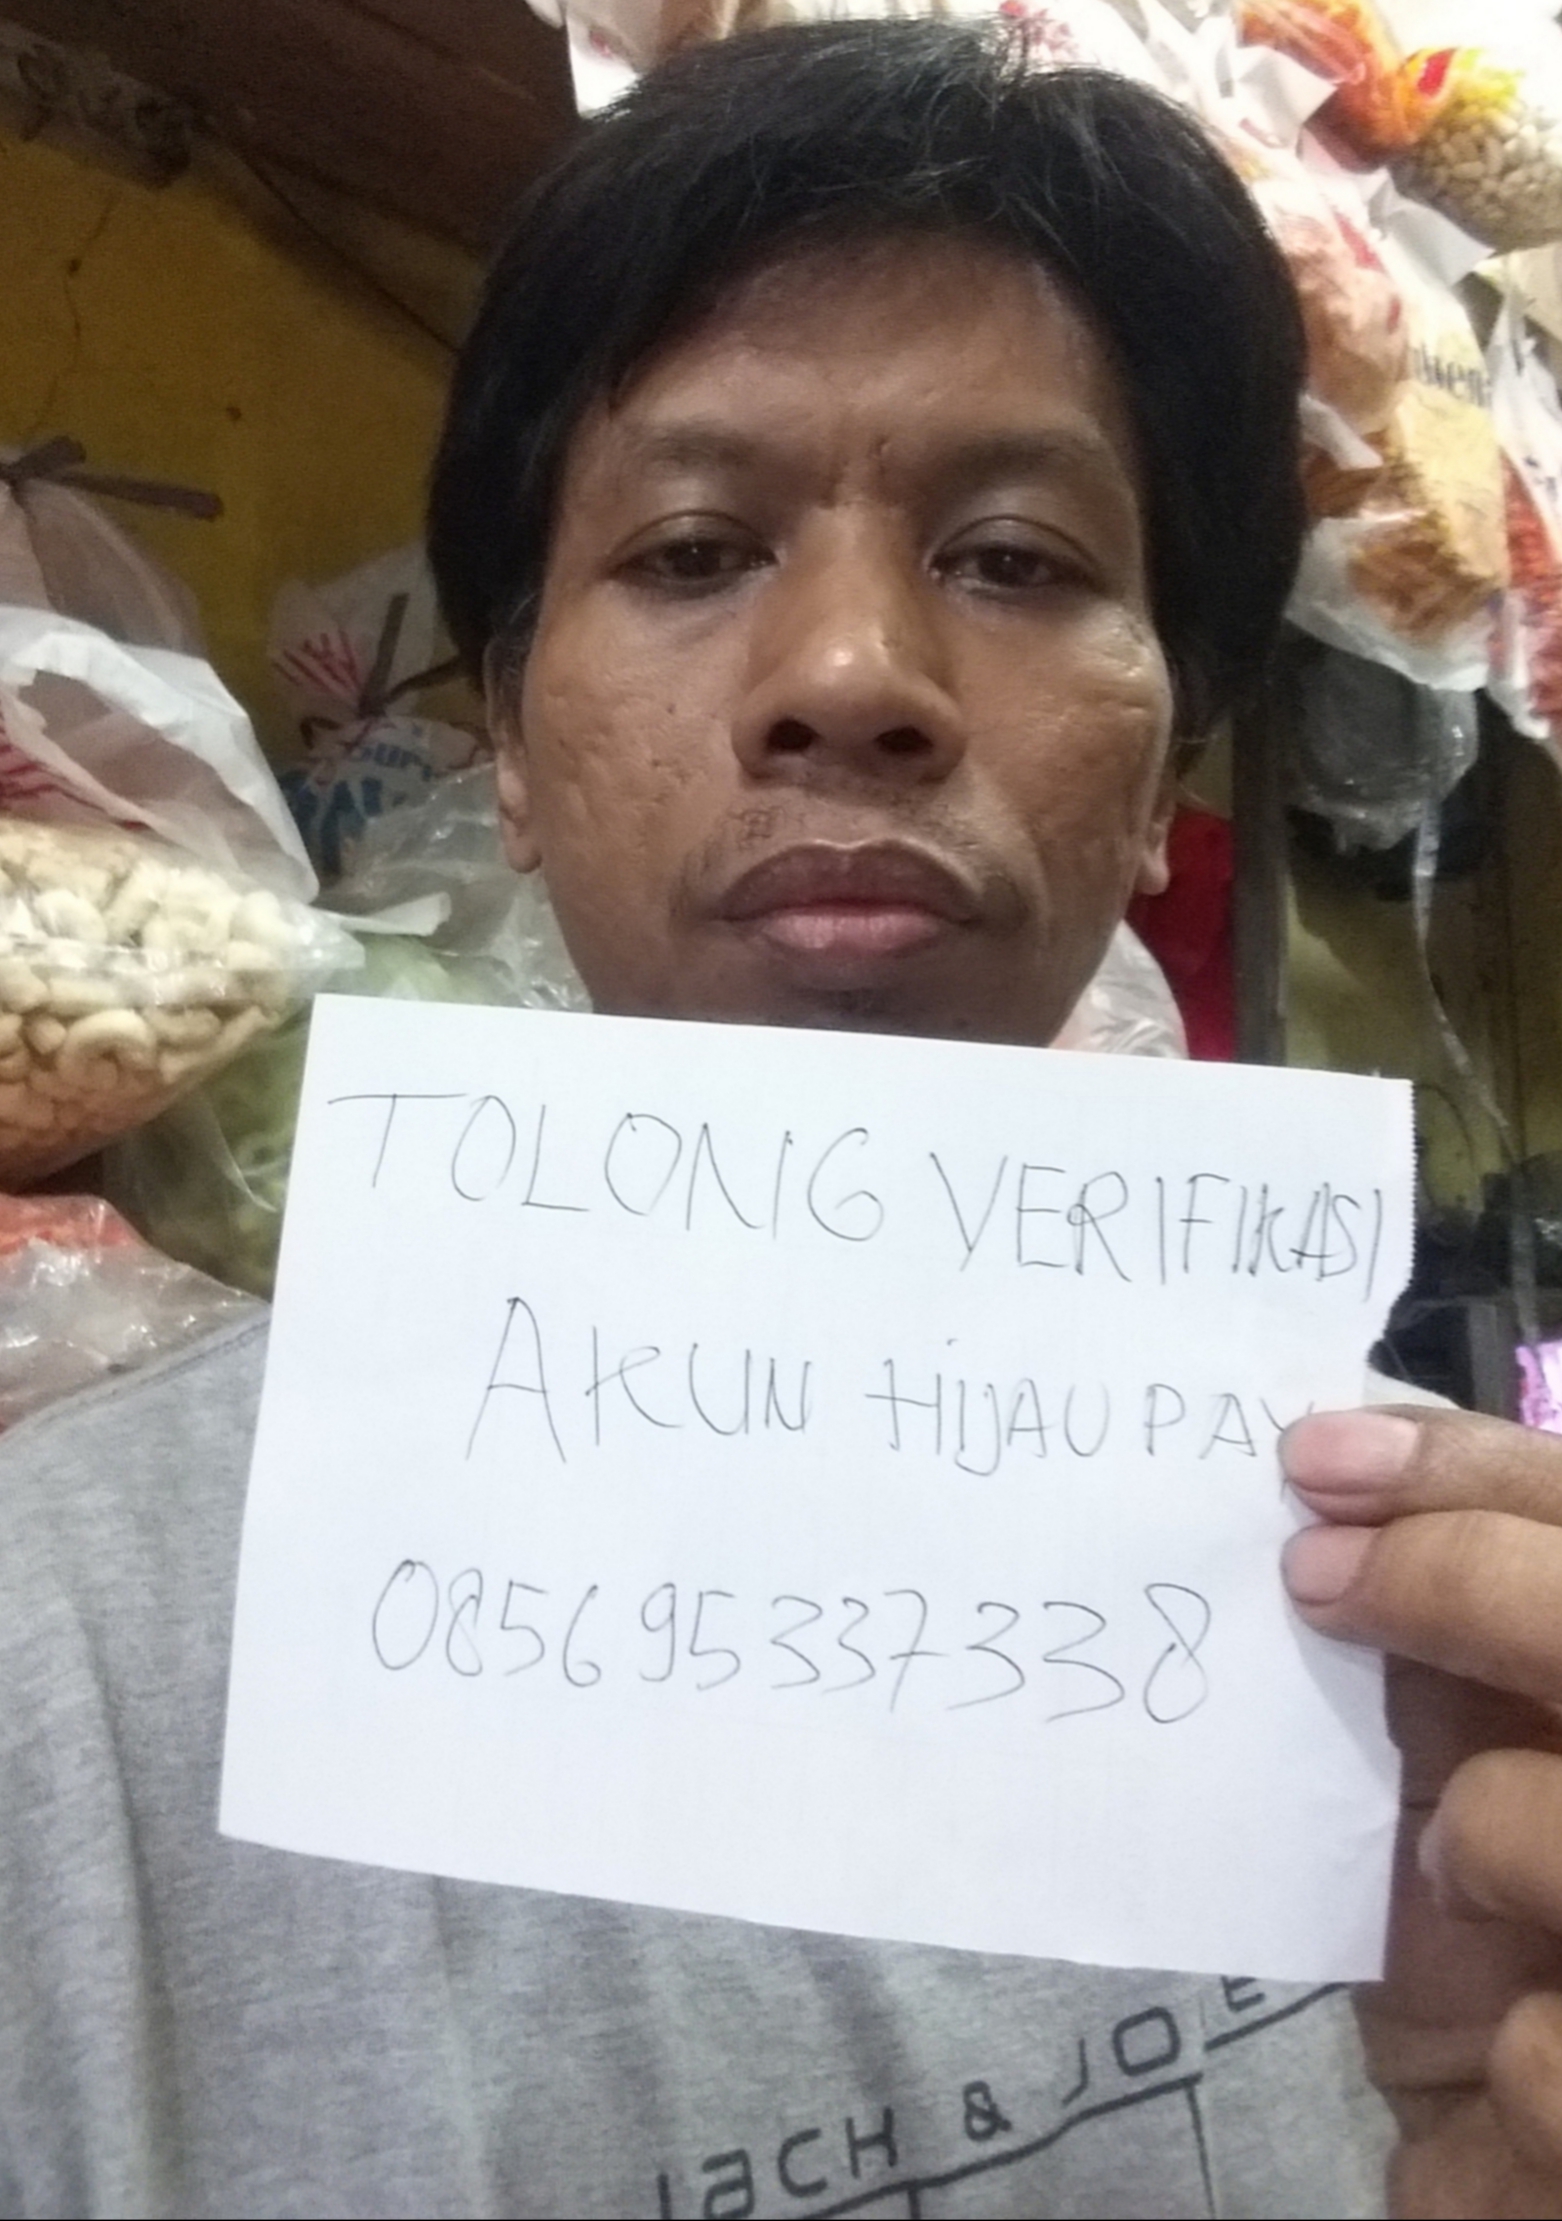 TOLONG VERIFIKASI
AKUN HIJAU PAY
085695337338
JACH & JOE